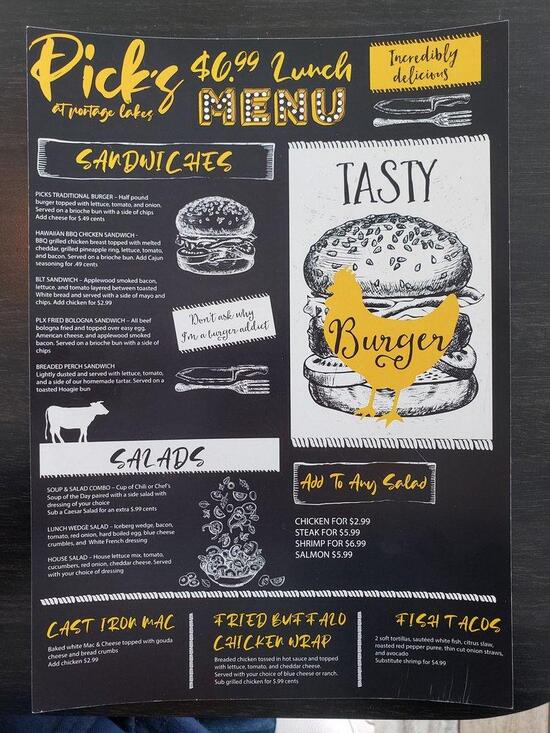 Picks
at portage lakes
$6.99 Lunch
MENU
Incredibly
delicious
SANDWICHES
PICKS TRADITIONAL BURGER – Half pound
burger topped with lettuce, tomato, and onion.
Served on a brioche bun with a side of chips
Add cheese for $.49 cents
HAWAIIAN BBQ CHICKEN SANDWICH -
BBQ grilled chicken breast topped with melted
cheddar, grilled pineapple ring, lettuce, tomato,
and bacon. Served on a brioche bun. Add Cajun
seasoning for .49 cents
BLT SANDWICH – Applewood smoked bacon,
lettuce, and tomato layered between toasted
White bread and served with a side of mayo and
chips. Add chicken for $2.99
PLX FRIED BOLOGNA SANDWICH – All beef
bologna fried and topped over easy egg,
American cheese, and applewood smoked
bacon. Served on a brioche bun with a side of
chips
BREADED PERCH SANDWICH
Lightly dusted and served with lettuce, tomato,
and a side of our homemade tartar. Served on a
toasted Hoagie bun
Don't ask why
I'm a burger addict
TASTY
Burger
SALADS
SOUP & SALAD COMBO – Cup of Chili or Chef's
Soup of the Day paired with a side salad with
dressing of your choice
Sub a Caesar Salad for an extra $.99 cents
LUNCH WEDGE SALAD – Iceberg wedge, bacon,
tomato, red onion, hard boiled egg, blue cheese
crumbles, and White French dressing
HOUSE SALAD – House lettuce mix, tomato,
cucumbers, red onion, cheddar cheese. Served
with your choice of dressing
Add To Any Salad
CHICKEN FOR $2.99
STEAK FOR $5.99
SHRIMP FOR $6.99
SALMON $5.99
CAST IRON MAC
Baked white Mac & Cheese topped with gouda
cheese and bread crumbs
Add chicken $2.99
FRIED BUFFALO
CHICKEN WRAP
Breaded chicken tossed in hot sauce and topped
with lettuce, tomato, and cheddar cheese.
Served with your choice of blue cheese or ranch.
Sub grilled chicken for $.99 cents
FISH TACOS
2 soft tortillas, sautéed white fish, citrus slaw,
roasted red pepper puree, thin cut onion straws,
and avocado
Substitute shrimp for $4.99